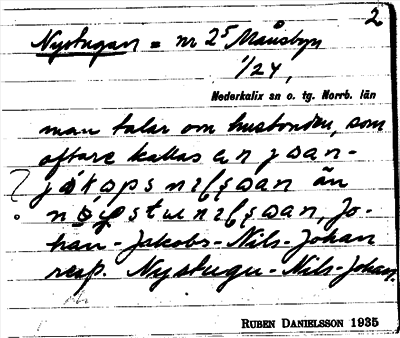 2
Nystugan = nr 25 Månsbyn
1/24,
Nederkalix sn o. tg. Norrb. län
man talar om husbonden, som
oftare kallas
än
Jo-
han-Jakobs-Nils-Johan
resp. Nystugu-Nils-Johan.
RUBEN DANIELSSON 1935